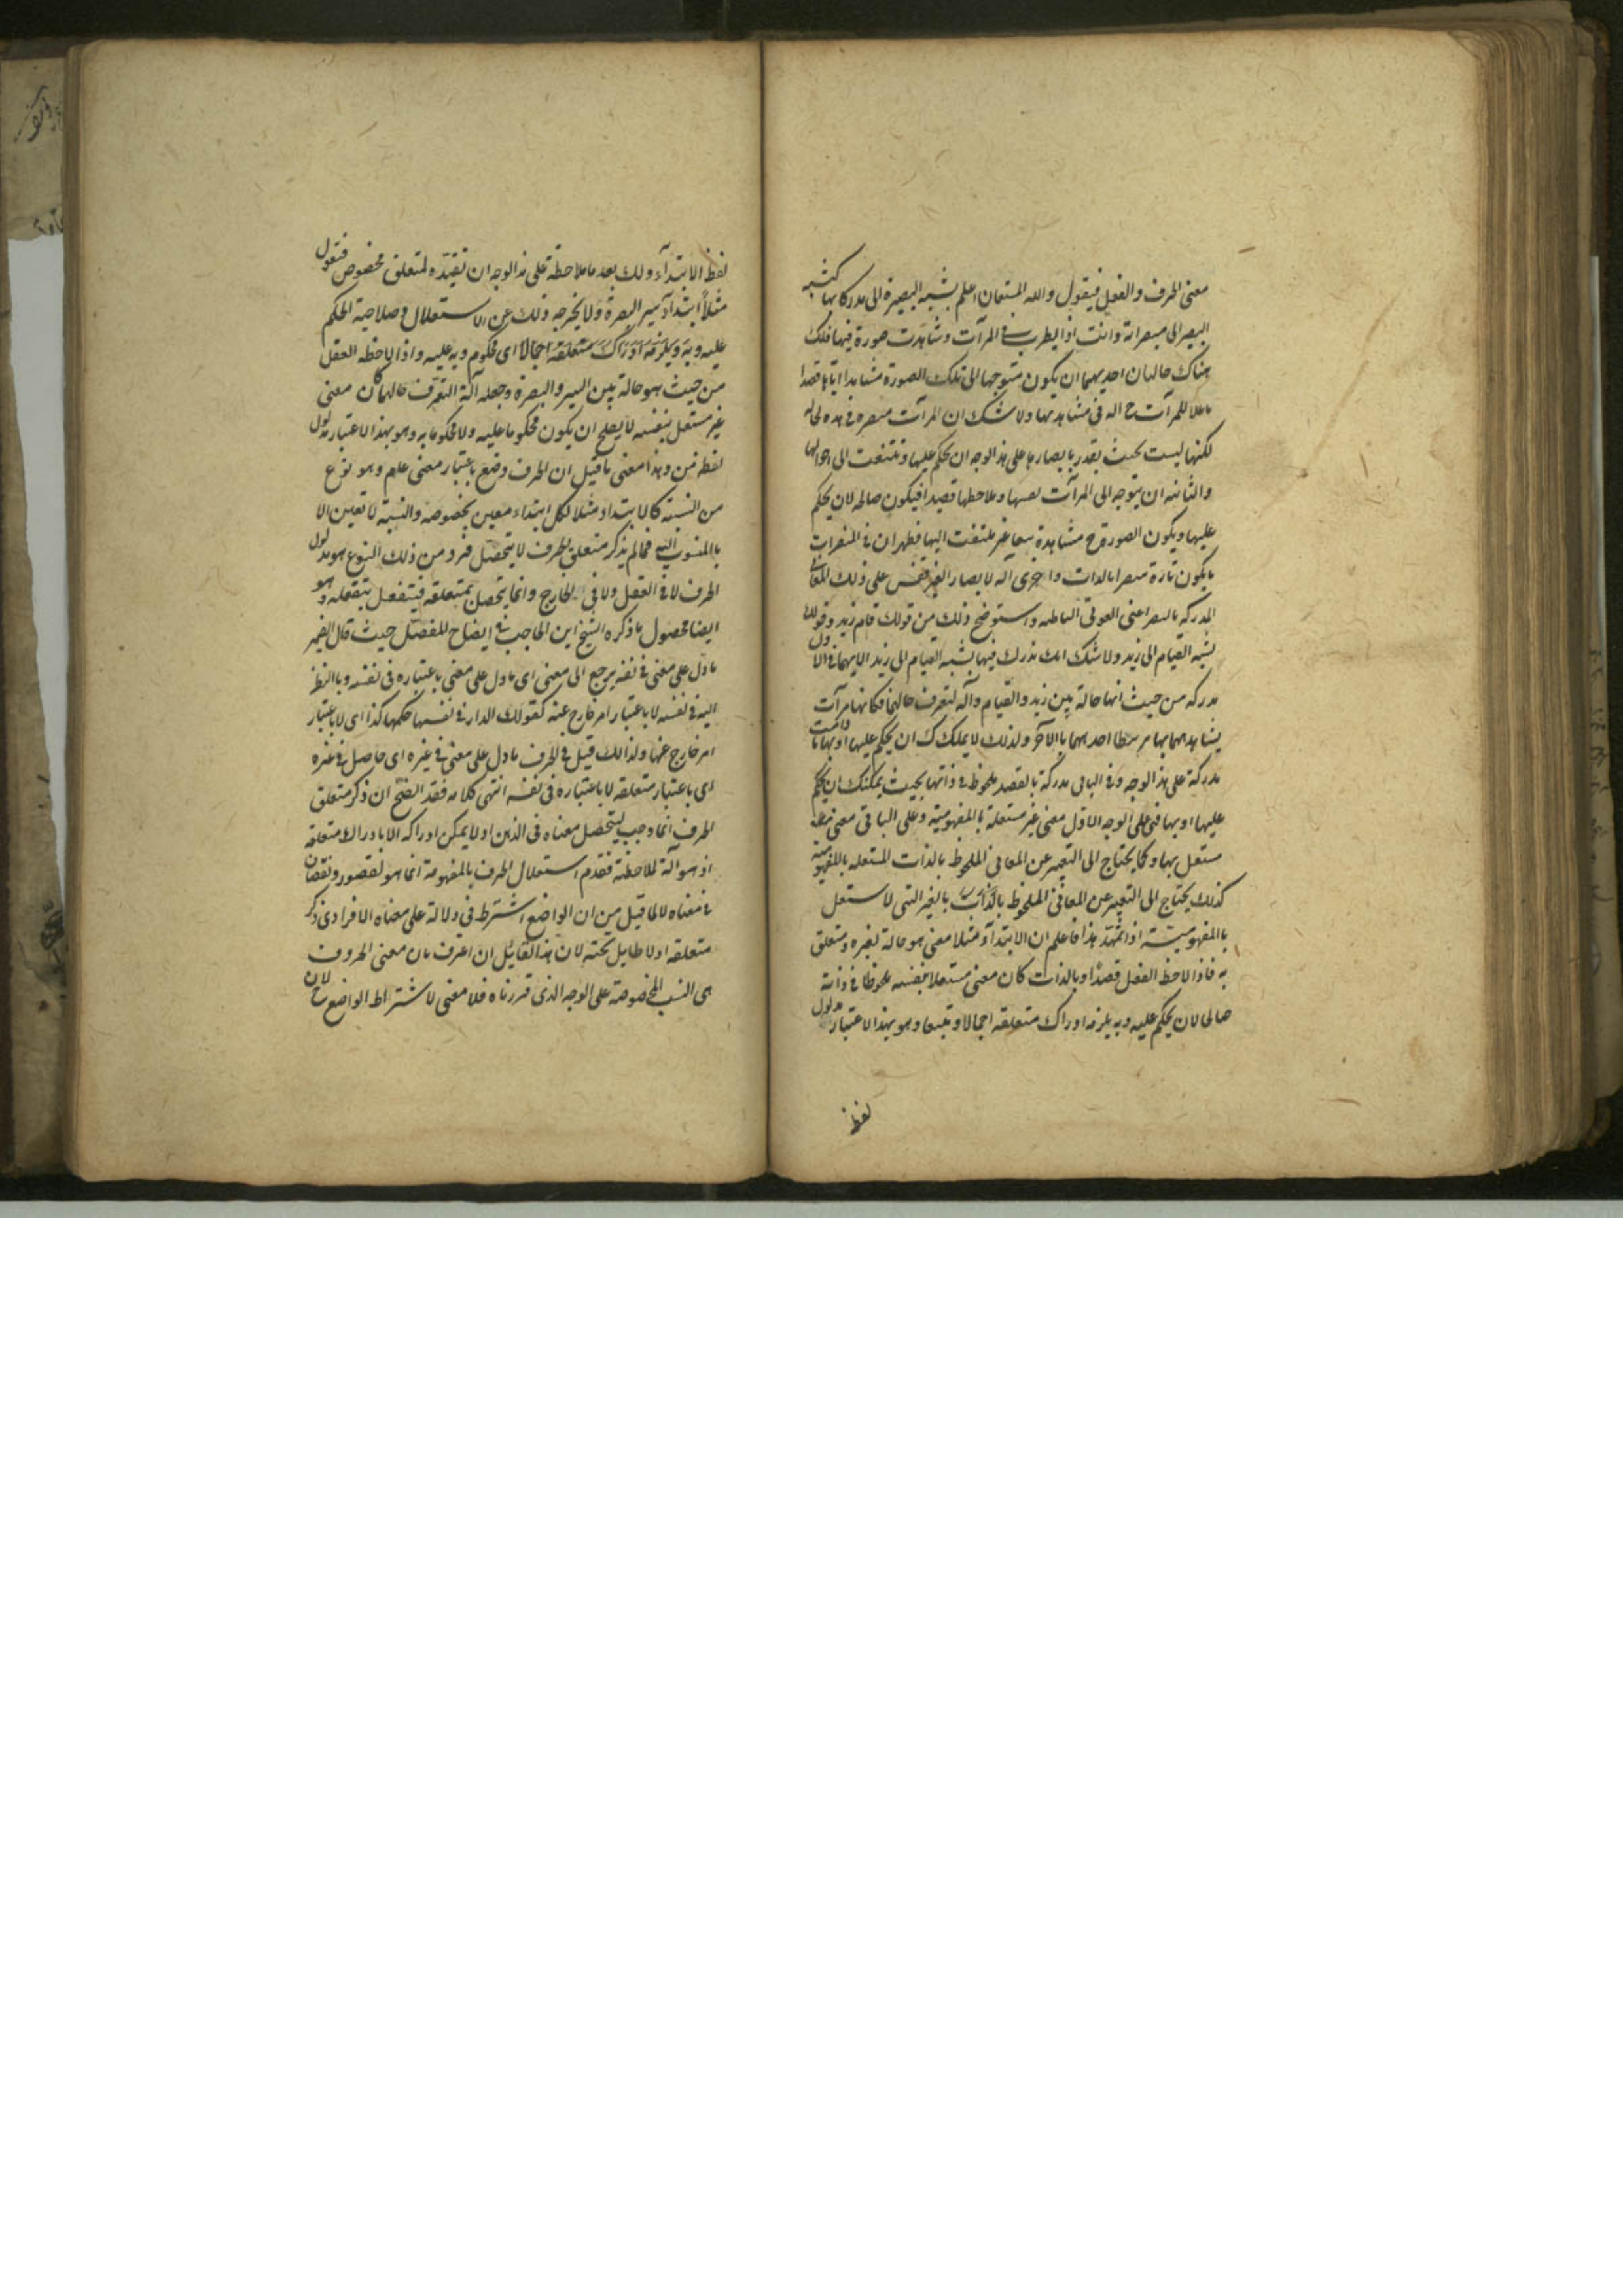 معنى الحرف والفعل فيقول والله المستعان اعلم نسبة البصيرة الى مدركاتها كنسبة
البصر الى مبصراته وانت اذا نظرت في المرآت وشاهدت صورة فيها فلك
هناك حالتان احديهما ان يكون متوجها الى تلك الصورة مشاهدا اياها قصدا
جاعلا للمرآت ح اله في مشاهدتها ولا شك ان المرآت مبصرة في هذه الحاله
لكنها ليست بحيث يقدر بابصارها على هذا الوجه ان يحكم عليها وتلتفت الى احوالها
والثانيه ان يتوجه الى المرآت نفسها وملاحظها قصدا فيكون صالحه لان يحكم
عليها ويكون الصورة ح مشاهدة تبعا غير ملتفت اليها فظهر ان في المبصرات
ما يكون تارة مبصرا بالذات واخرى آله لابصار الغير فقس على ذلك المعاني
المدركه بالبصر اعنى القوى الباطنه واستوضح ذلك من قولك قام زيد وقولك
نسبة القيام الى زيد ولا شك انك تدرك فيها نسبة القيام الى زيد الا انها في الاول
مدركه من حيث انها حالة بين زيد والقيام وآلة لتعرف حالهما فكانها مرآت
يشاهدهما بها مرتبطا احدهما بالآخر ولذلك لا يملكك ان يحكم عليها او بها ما دامت
مدركة على هذا الوجه وفي الثاني مدركة بالقصد ملحوظ في ذاتها بحيث يمكنك ان يحكم
عليها او بها فهى على الوجه الاول معنى غير مستقلة بالمفهومية وعلى الثاني معنى
مستقل بها وكما يحتاج الى التعبير عن المعانى الملحوظ بالذات المستقله بالمفهومية
كذلك يحتاج الى التعبير عن المعانى الملحوظ بالذات بالغير التى لا يستقل
بالمفهومية اذا تمهد هذا فاعلم ان الابتدآء مثلا معنى هو حالة لغيره ومتعلق
به فاذا لاحظ العقل قصدا وبالذات كان معنى مستقلا بنفسه ملحوظا في ذاته
صالحا لان يحكم عليه وبه يلزمه ادراك متعلقه اجمالا وتبعا وهو بهذا الاعتبار مدلول
لفظ
لفظ الابتدآء ولك بعد ملاحظة على هذا الوجه ان تقيده لمتعلق مخصوص فتقول
مثلا ابتدآء سير البصرة ولا يخرجه ذلك عن الاستقلال وصلاحية الحكم
عليه وبه ويلزمه ادراك متعلقه اجمالا اى محكوم وبه عليه واذا لاحظه العقل
من حيث هو حالة بين السير والبصرة وجعله آلة التعرف حالهما كان معنى
غير مستقل بنفسه لا يصلح ان يكون محكوما عليه ولا محكوما به وهو بهذا الاعتبار مدلول
لفظة من وهذا معنى ما قيل ان الحرف وضع باعتبار معنى عام وهو نوع
من النسبة كالابتداء مثلا لكل ابتداء معين بخصوصه والنسبة لا تعين الا
بالمنسوب اليه فما لم يذكر متعلق الحرف لا يتحصل فرد من ذلك النوع هو مدلول
الحرف لا فى العقل ولا فى الخارج وانما يتحصل بمتعلقه فيتفعل بتعقله وهو
ايضا محصول ما ذكره الشيخ ابن الحاجب في ايضاح المفصل حيث قال الضمير
ما دل على معنى فى نفسه يرجع الى معنى اى ما دل على معنى باعتباره فى نفسه وبالنظر
اليه فى نفسه لا باعتبار امر خارج عنه كقولك الدار في نفسها حكمها كذا اى لا باعتبار
امر خارج عنها ولذالك قيل في الحرف ما دل على معنى في غيره اى حاصل في غيره
اى باعتبار متعلقه لا باعتباره فى نفسه انتهى كلامه فقد اتضح ان ذكر متعلق
الحرف انما وجب ليتحصل معناه فى الذهن اذ لا يمكن ادراكه الا بادراك متعلقه
اذ هو آلة لملاحظته فعدم استقلال الحرف بالمفهومية انما هو لقصور ونقصان
فى معناه لا لما قيل من ان الواضع اشترط فى دلالة على معناه الافرادى ذكر
متعلقه اذ لا طايل تحته لان هذا القايل ان اعترف بان معنى الحروف
هى النسب المخصوصة على الوجه الذى قررناه فلا معنى لاشتراط الواضع ح لان